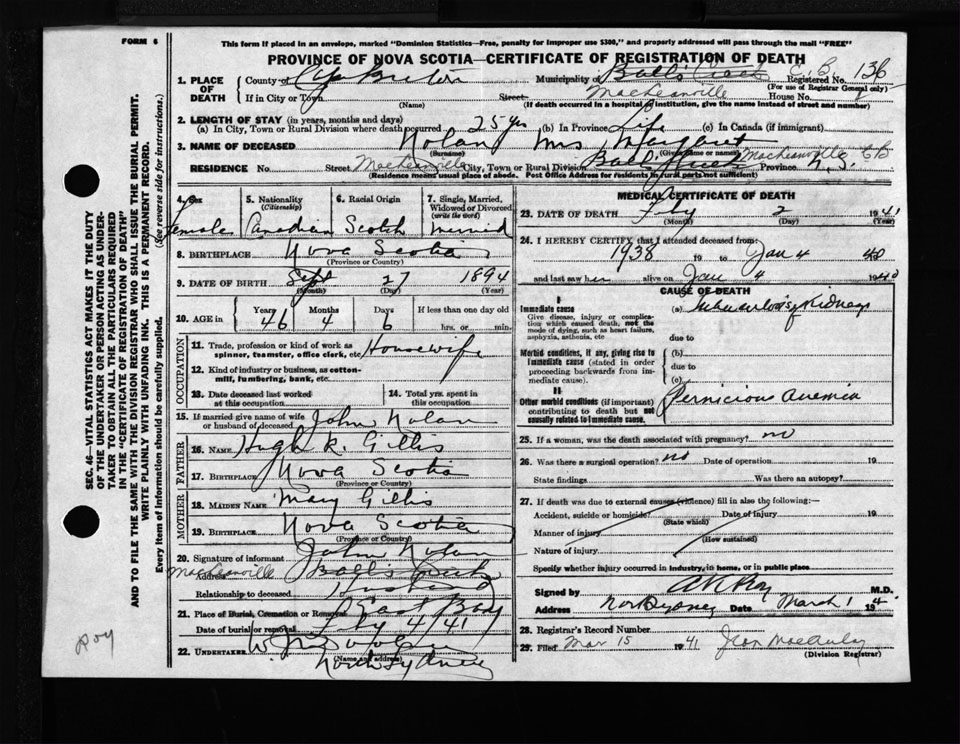 FORM 6
This form if placed in an envelope, marked "Dominion Statistics—Free, penalty for improper use $300," and properly addressed will pass through the mail "FREE"
PROVINCE OF NOVA SCOTIA—CERTIFICATE OF REGISTRATION OF DEATH
1. PLACE OF DEATH County of Cape Breton Municipality of Balls Creek C B Registered No. 136
(For use of Registrar General only)
If in City or Town (Name) Street MacLeanville House No.
(If death occurred in a hospital or institution, give the name instead of street and number)
2. LENGTH OF STAY (in years, months and days)
(a) In City, Town or Rural Division where death occurred 25 yrs (b) In Province Life (c) In Canada (if immigrant)
3. NAME OF DECEASED Nolan Mrs Margaret
(Surname) (Given name or names)
RESIDENCE No. Street MacLeanville City, Town or Rural Division Balls Creek MacLeanville CB Province N. S.
(Residence means usual place of abode. Post Office Address for residents in rural parts not sufficient)
4. Sex Female
5. Nationality (Citizenship) Canadian
6. Racial Origin Scotch
7. Single, Married, Widowed or Divorced (write the word) Married
8. BIRTHPLACE Nova Scotia
(Province or Country)
9. DATE OF BIRTH Sept 27 1894
(Month) (Day) (Year)
10. AGE Years 46 Months 4 Days 6 If less than one day old hrs. or min.
OCCUPATION
11. Trade, profession or kind of work as spinner, teamster, office clerk, etc. Housewife
12. Kind of industry or business, as cotton-mill, lumbering, bank, etc.
13. Date deceased last worked at this occupation
14. Total yrs. spent in this occupation
15. If married give name of wife or husband of deceased John Nolan
FATHER
16. NAME Hugh R. Gillis
17. BIRTHPLACE Nova Scotia
(Province or Country)
MOTHER
18. MAIDEN NAME Mary Gillis
19. BIRTHPLACE Nova Scotia
(Province or Country)
20. Signature of informant John Nolan
MacLeanville Address Balls Creek
Relationship to deceased Husband
21. Place of Burial, Cremation or Removal East Bay
Date of burial or removal Feby 4/41
22. UNDERTAKER
(Name and address)
North Sydney
MEDICAL CERTIFICATE OF DEATH
23. DATE OF DEATH Feby 2 1941
(Month) (Day) (Year)
24. I HEREBY CERTIFY, that I attended deceased from:
1938 19 to Jan 4 40
and last saw her alive on Jan 4 1940
CAUSE OF DEATH
I
Immediate cause (a) Tuberculosis Kidneys
Give disease, injury or complication which caused death, not the mode of dying, such as heart failure, asphyxia, asthenia, etc
due to
Morbid conditions, if any, giving rise to immediate cause (stated in order proceeding backwards from immediate cause).
(b)
due to
(c)
II
Other morbid conditions (if important) contributing to death but not causally related to immediate cause. Pernicious Anemia
25. If a woman, was the death associated with pregnancy? no
26. Was there a surgical operation? no Date of operation 19
State findings Was there an autopsy?
27. If death was due to external causes (violence) fill in also the following:
Accident, suicide or homicide? Date of injury 19
(State which)
Manner of injury
(How sustained)
Nature of injury
Specify whether injury occurred in industry, in home, or in public place
Signed by M.D.
Address North Sydney Date March 1 194
28. Registrar's Record Number
29. Filed Mar 15 1941 Jean MacAulay
(Division Registrar)
SEC. 46—VITAL STATISTICS ACT MAKES IT THE DUTY
OF THE UNDERTAKER OR PERSON ACTING AS UNDER-
TAKER TO OBTAIN ALL THE PARTICULARS REQUIRED
IN THE "CERTIFICATE OF REGISTRATION OF DEATH"
AND TO FILE THE SAME WITH THE DIVISION REGISTRAR WHO SHALL ISSUE THE BURIAL PERMIT.
WRITE PLAINLY WITH UNFADING INK. THIS IS A PERMANENT RECORD.
Every item of information should be carefully supplied. (See reverse side for instructions.)
Roy